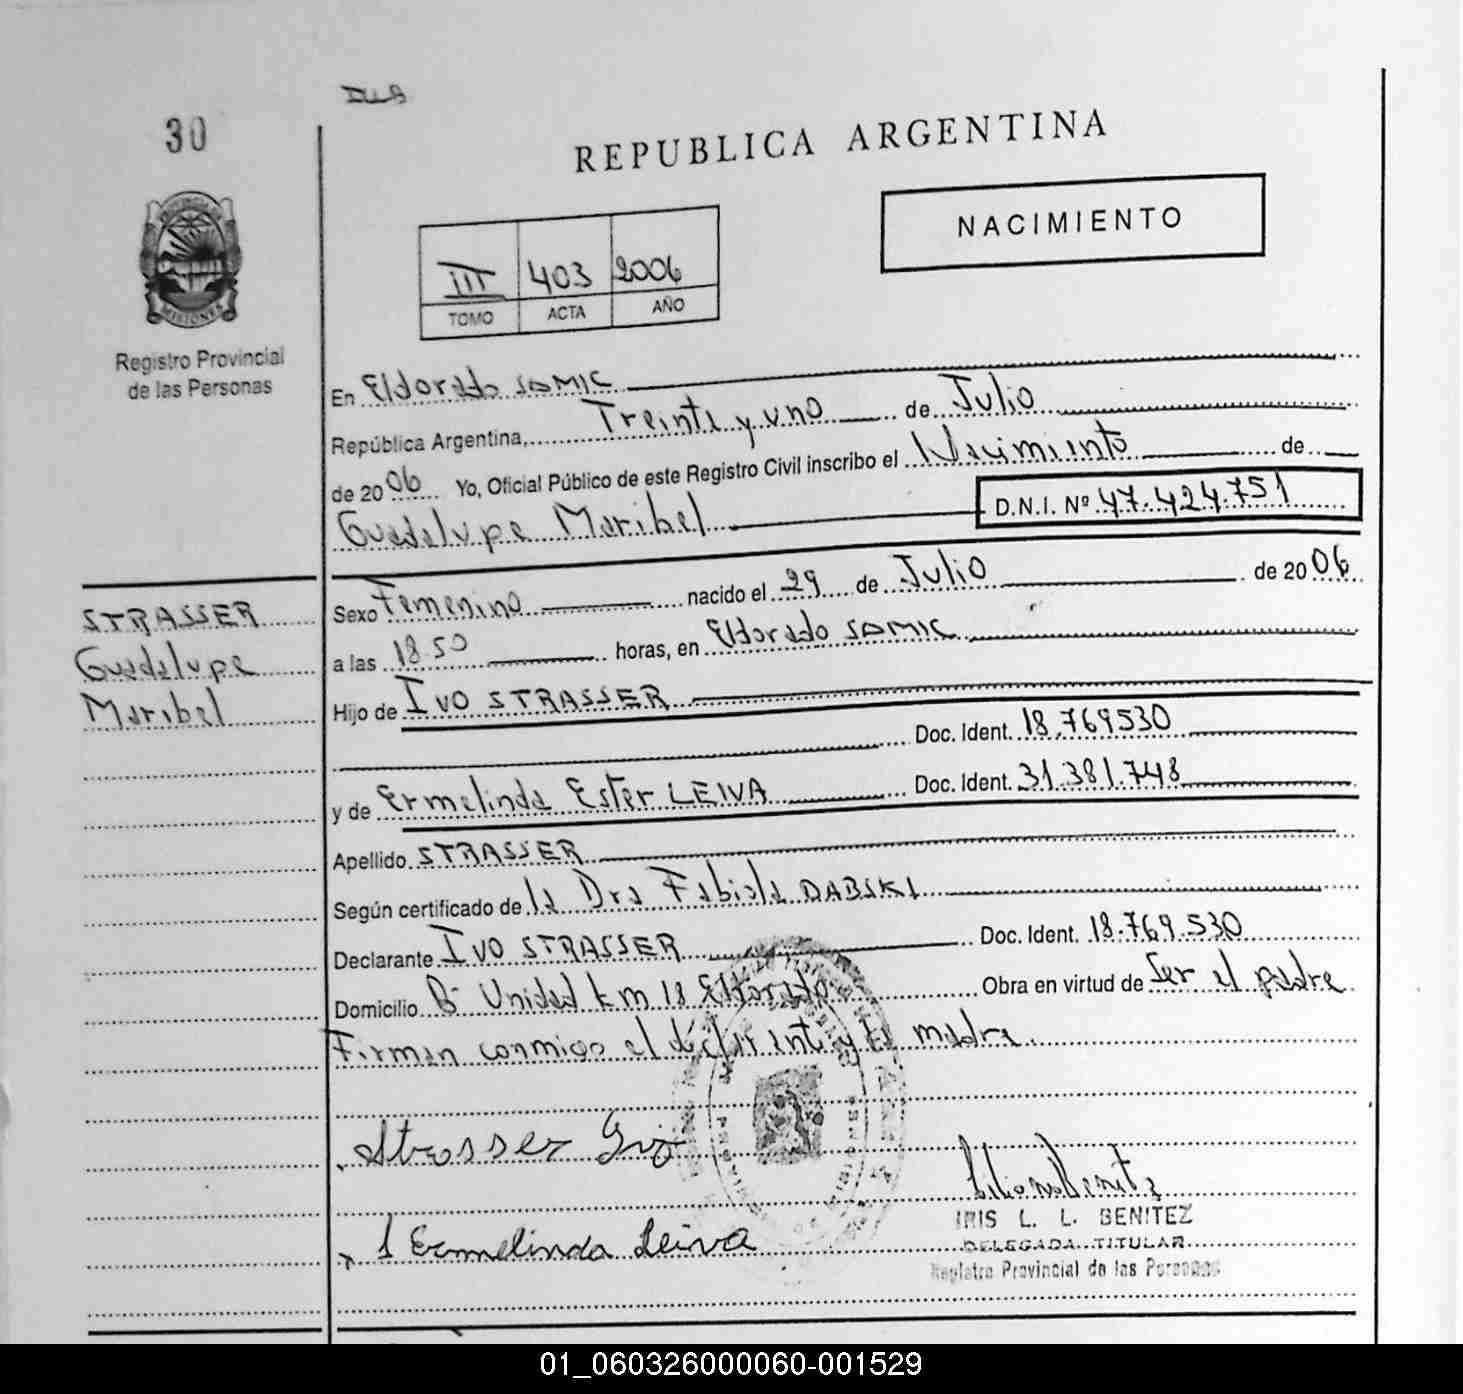 30
REPUBLICA ARGENTINA
NACIMIENTO
III 403 2006
TOMO ACTA AÑO
MISIONES
Registro Provincial
de las Personas
En Eldorado SAMIC
República Argentina, Treinta y uno de Julio
de 2006 Yo, Oficial Público de este Registro Civil inscribo el Nacimiento de
Guadalupe Maribel D.N.I. Nº 47.424.751
STRASSER
Guadalupe
Maribel
Sexo Femenino nacido el 29 de Julio de 2006
a las 18.50 horas, en Eldorado SAMIC
Hijo de IVO STRASSER
Doc. Ident. 18.769530
y de Ermelinda Ester LEIVA Doc. Ident. 31.381.748
Apellido STRASSER
Según certificado de la Dra Fabiola DABSKI
Declarante IVO STRASSER Doc. Ident. 18.769.530
Domicilio Bº Unidad km 18 Eldorado Obra en virtud de Ser el padre
Firman conmigo el declarante y la madre
Strasser Ivo
Liliana Benitz
IRIS L. L. BENITEZ
Ermelinda Leiva
DELEGADA TITULAR
Registro Provincial de las Personas
01_060326000060-001529